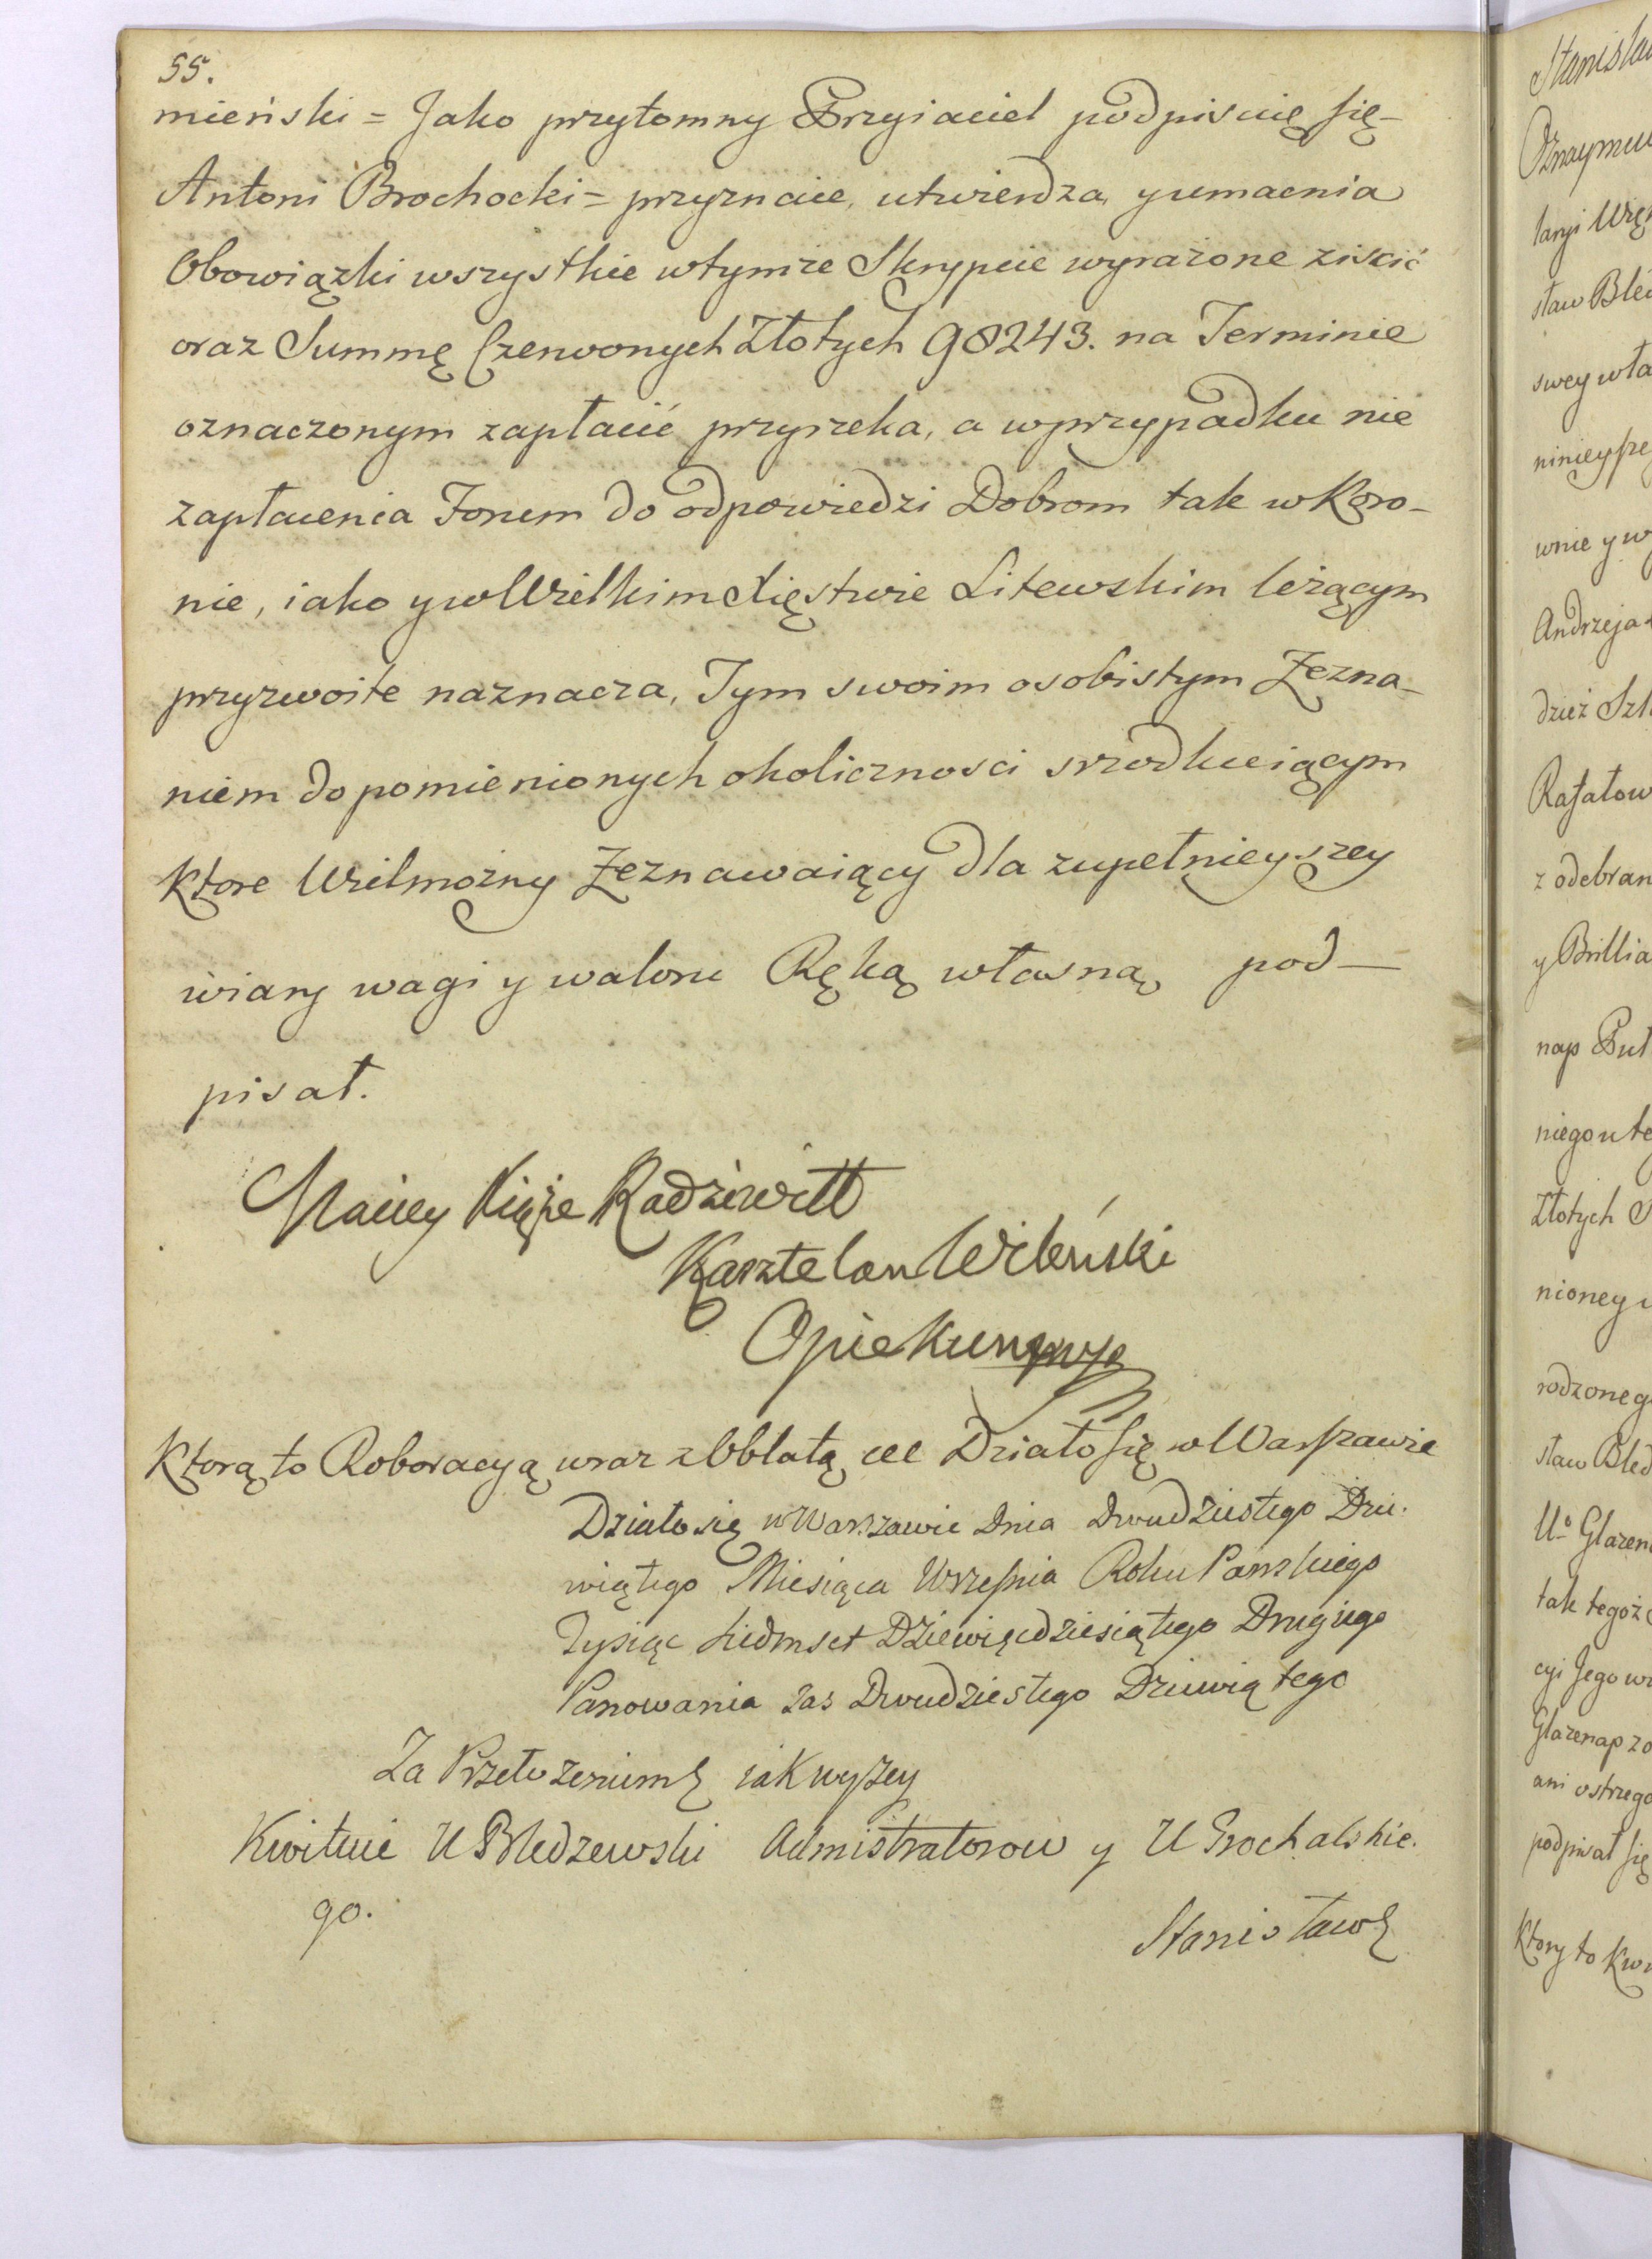 55.
mieński = Jako przytomny Przyiaciel podpisuię się_
Antoni Brochocki = przyznaie, utwierdza, y umacnia
Obowiązki wszystkie wtymże Skrypcie wyrażone ziscić
oraz Summę Czerwonych Złotych 98243. na Terminie
oznaczonym zapłacić przyrzeka, a wprzypadku nie
zapłacenia Forum do odpowiedzi Dobrom tak w Koro_
nie, iako y w Wielkim Xięstwie Litewskim leżącym
przyzwoite naznacza, Tym swoim osobistym Zezna_
niem do pomienionych okolicznosci srzodkuiącym
ktore Wielmożny Zeznawaiący dla zupełnieyszey
wiary wagi y waloru Ręką własną pod_
pisał.
Maciey Xiąże Radziwiłł
Kasztelan Wileński
Opiekun mpp
Ktorą to Roboracyą wraz z Oblatą &c Działo się w Warszawie
Działo się w Warszawie Dnia Dwudziestego Dzie.
wiątego Miesiąca Wrzesnia Roku Panskiego
Tysiąc Siedmset Dziewięcdziesiątego Drugiego
Panowania zas Dwudziestego Dziewiątego
Za Przełożeniem iak wyzey
Kwituie U Bledzewski Admistratorow y U Grochalskie.
go.
Stanisław
Stanisła
Oznaymu
laryi Więk
sław Błed
swey wła
ninieysze
wnie y w
Andrzeja
dzież Szl
Rafałow
z odebran
y Brillia
nap Puł
niego u te
Złotych
nioney
rodzoneg
sław Bled
U° Glazen
tak tegoż
cyi Jego w
Glazenap zo
ani ostrzeg
podpisał się
Ktory to Kwi